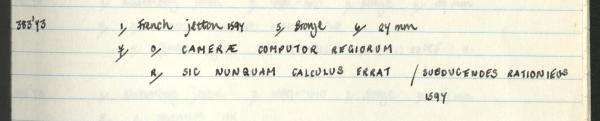 383'43 1, French jetton 1594 5, Bronze 6, 27 mm
7, O, CAMERÆ COMPUTOR REGIORUM
R, SIC NUNQUAM CALCULUS ERRAT / SUBDUCENDES RATIONIEUS
1594